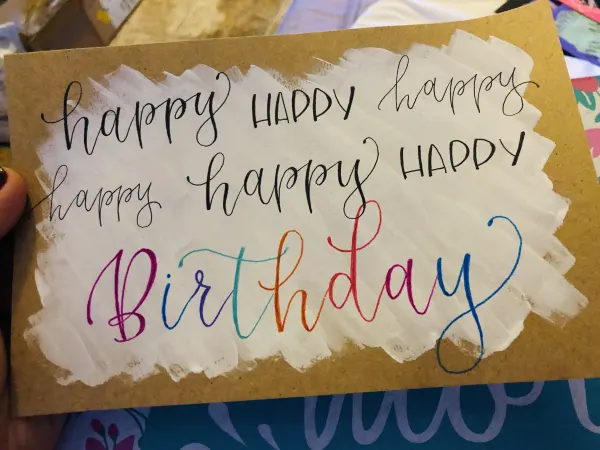 happy HAPPY happy
happy happy HAPPY
Birthday